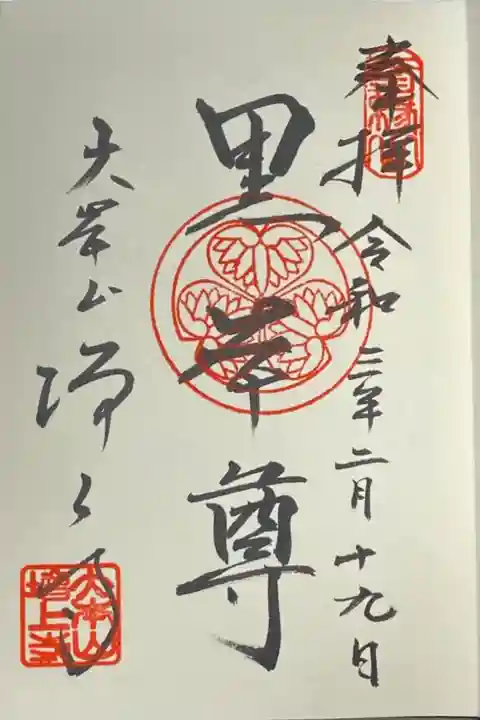 奉拝 令和三年二月十九日
黒本尊
大本山 増上寺
大本山
増上寺